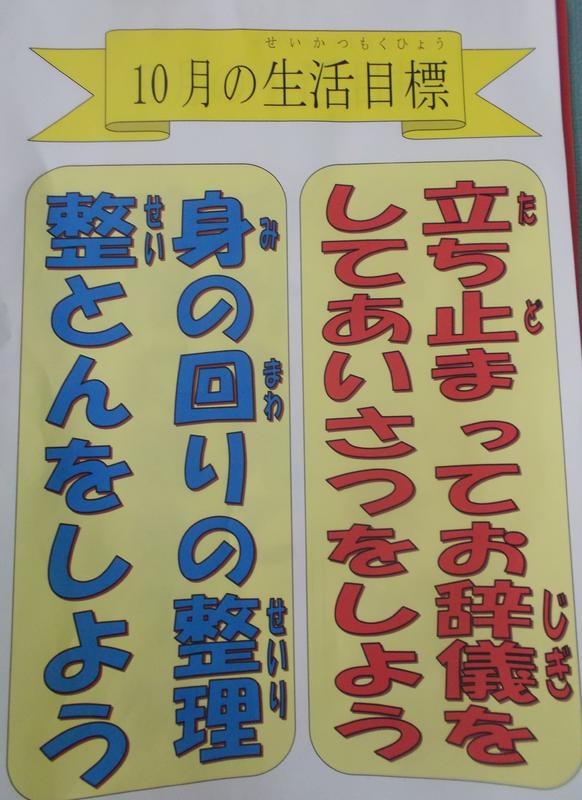 せいかつもくひょう
10月の生活目標
た ど じぎ
立ち止まってお辞儀を
してあいさつをしよう
み まわ せいり
身の回りの整理
せい
整とんをしよう